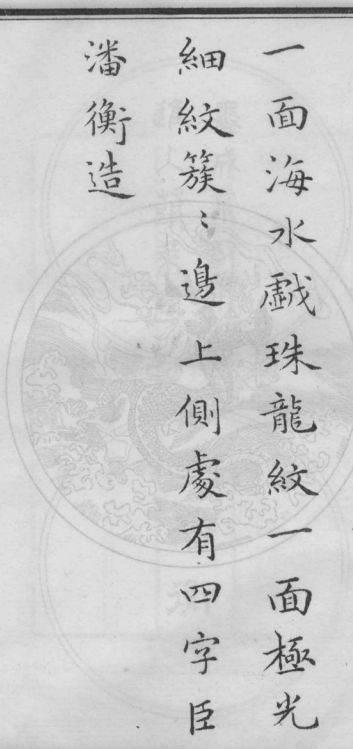 一面海水戯珠龍紋一面極光
細紋簇〻邊上側處有四字臣
潘衡造